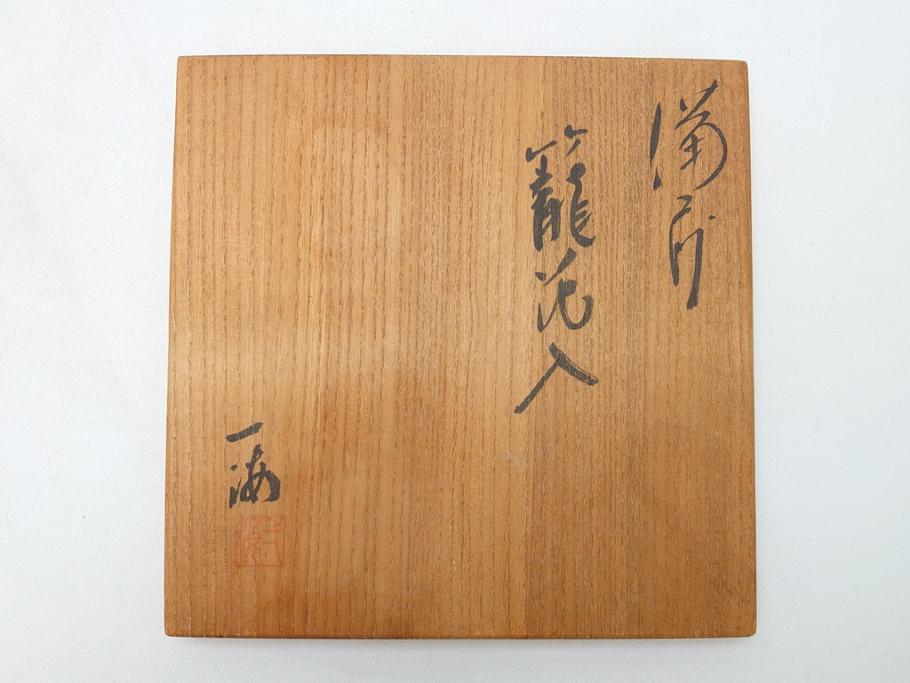 備前
籠花入
一海